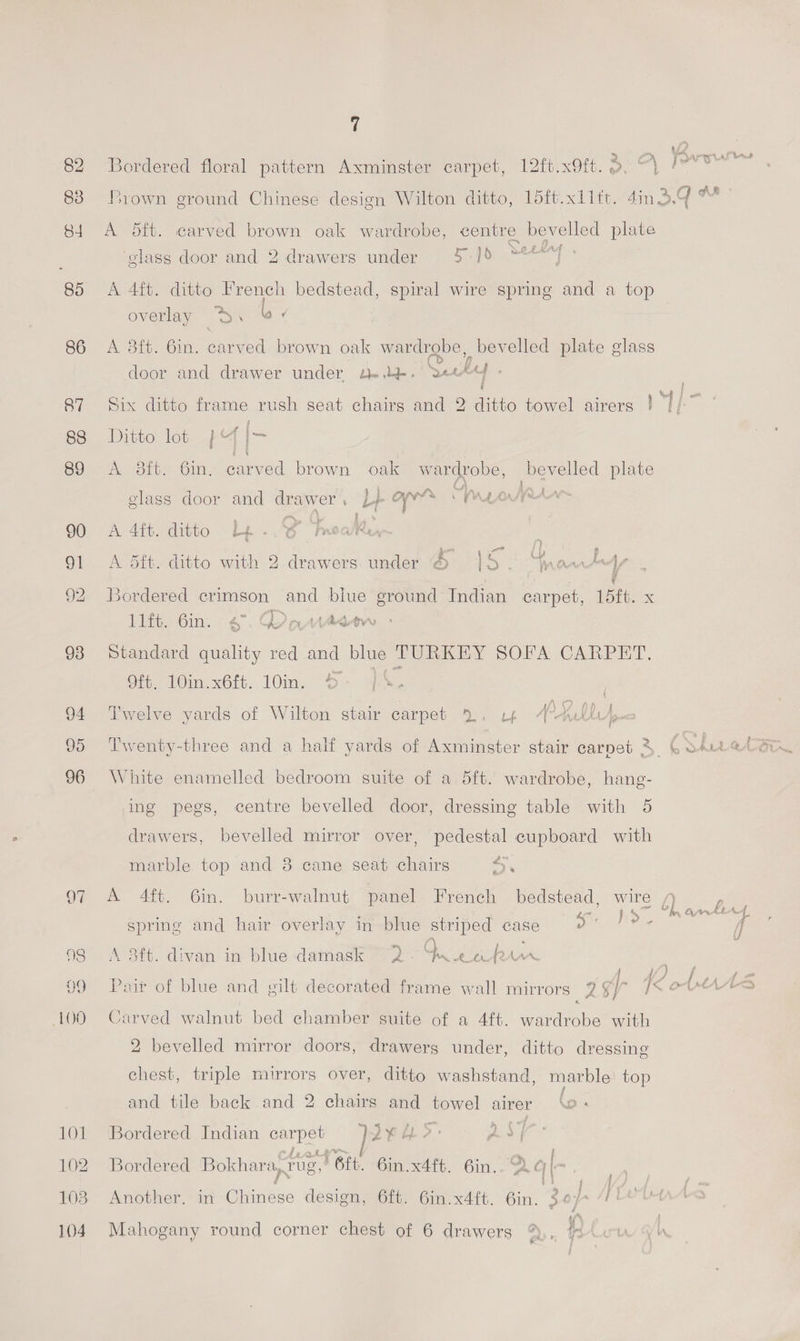 7
82 Bordered floral pattern Axminster carpet, 12ft.x9ft. 3.
83 Brown ground Chinese design Wilton ditto, 15ft.x11ft. 4in 3.9
84 A 5ft. carved brown oak wardrobe, centre bevelled plate
glass door and 2 drawers under 5.15
85 A 4ft. ditto French bedstead, spiral wire spring and a top
overlay
86 A 3ft. 6in. carved brown oak wardrobe, bevelled plate glass
door and drawer under
87 Six ditto frame rush seat chairs and 2 ditto towel airers
88 Ditto lot
89 A 3ft. 6in. carved brown oak wardrobe, bevelled plate
glass door and drawer
90 A 4ft. ditto
91 A 5ft. ditto with 2 drawers under
92 Bordered crimson and blue ground Indian carpet, 15ft. x
11ft. 6in.
93 Standard quality red and blue TURKEY SOFA CARPET,
9ft. 10in.x6ft. 10in.
94 Twelve yards of Wilton stair carpet
95 Twenty-three and a half yards of Axminster stair carpet
96 White enamelled bedroom suite of a 5ft. wardrobe, hang-
ing pegs, centre bevelled door, dressing table with 5
drawers, bevelled mirror over, pedestal cupboard with
marble top and 3 cane seat chairs 5.
97 A 4ft. 6in. burr-walnut panel French bedstead, wire
spring and hair overlay in blue striped case
98 A 3ft. divan in blue damask 2.
99 Pair of blue and gilt decorated frame wall mirrors 28/- Roberts
100 Carved walnut bed chamber suite of a 4ft. wardrobe with
2 bevelled mirror doors, drawers under, ditto dressing
chest, triple mirrors over, ditto washstand, marble top
and tile back and 2 chairs and towel airer
101 Bordered Indian carpet
102 Bordered Bokhara rug, 6ft. 6in.x4ft. 6in.
103 Another, in Chinese design, 6ft. 6in.x4ft. 6in. 30/-
104 Mahogany round corner chest of 6 drawers